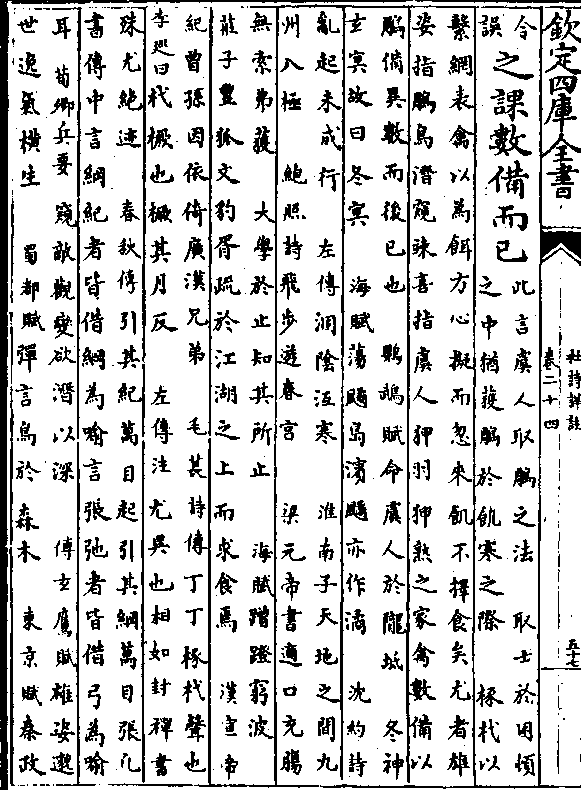 欽定四庫全書
杜詩詳註
卷二十四
五十七
令
誤
之課數備而已
此言虞人取鵰之法 取士於困頓
之中猶獲鵰於飢寒之際 椓杙以
繫網表禽以為餌方心擬而忽來飢不擇食矣尤者雄
姿指鵰鳥潛窺竦喜指虞人狎羽狎熟之家禽數備以
鵰備異數而後已也 鸚鵡賦命虞人於隴坻 冬神
玄冥故曰冬冥 海賦蕩颺島濱颺亦作 沈約詩
亂起未成行 左傳涸陰沍寒 淮南子天地之間九
州八極 鮑照詩飛步遊春宮 梁元帝書適口充腸
無索弟獲 大學於止知其所止 海賦蹭蹬窮波
莊子豐狐文豹胥疏於江湖之上而求食焉 漢宣帝
紀曾孫因依倚廣漢兄弟 毛萇詩傳丁丁椓杙聲也
李廵曰杙橛也橛其月反 左傳注尤異也相如封禪書
殊尤絶迹 春秋傳引其紀萬目起引其綱萬目張凡
書傳中言綱紀者皆借綱為喻言張弛者皆借弓為喻
耳 荀卿兵要窺敵觀變欲潛以深 傅玄鷹賦雄姿邈
世逸氣橫生 蜀都賦彈言鳥於森木 東京賦秦政